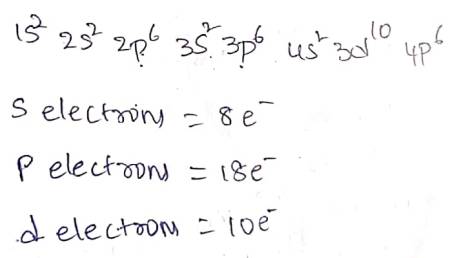 1s² 2s² 2p⁶ 3s² 3p⁶ 4s² 3d¹⁰ 4p⁶
S electrons = 8e⁻
P electrons = 18e⁻
d electrons = 10e⁻